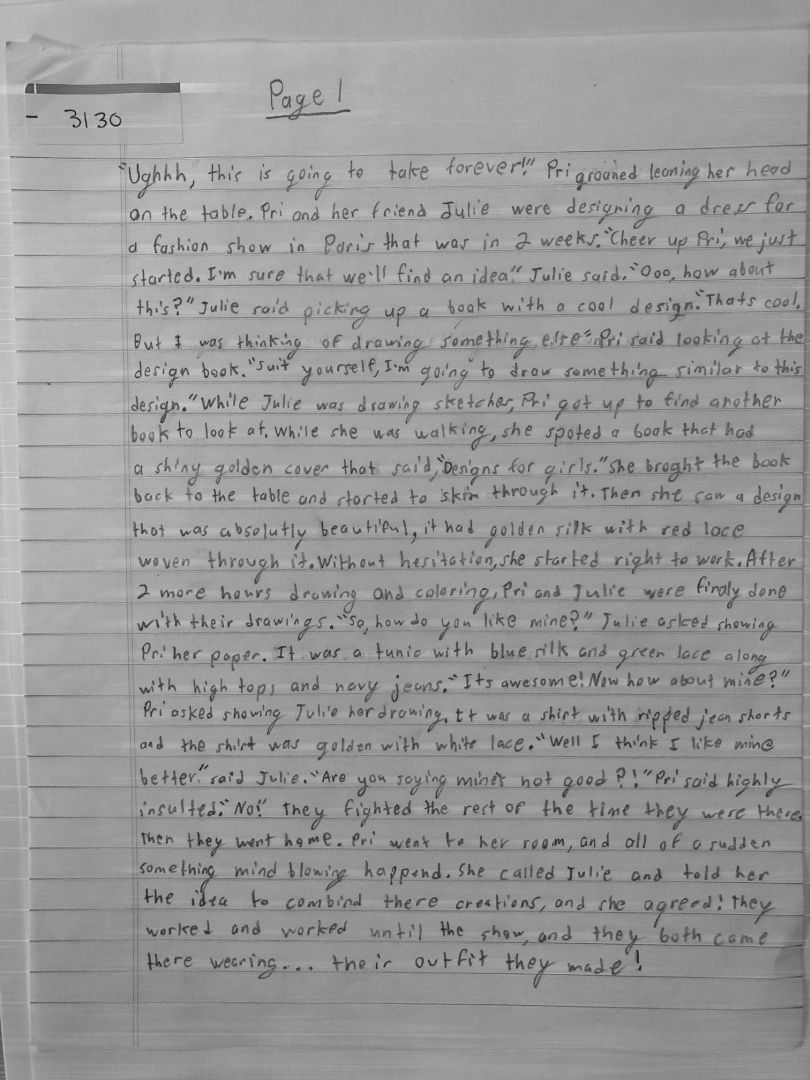 Page 1
- 3130
"Ughhh, this is going to take forever!" Pri groaned leaning her head
on the table. Pri and her friend Julie were designing a dress for
a fashion show in Paris that was in 2 weeks. "Cheer up Pri, we just
started. I'm sure that we'll find an idea." Julie said. "Ooo, how about
this?" Julie said picking up a book with a cool design. "Thats cool,
But I was thinking of drawing something else" Pri said looking at the
design book. "Suit yourself, I'm going" to draw something similar to this
design." While Julie was drawing sketches, Pri got up to find another
book to look at. While she was walking, she spoted a book that had
a shiny golden cover that said, "Designs for girls." She broght the book
back to the table and started to skim through it. Then she saw a design
that was absolutly beautiful, it had golden silk with red lace
woven through it. Without hesitation, she started right to work. After
2 more hours drawing and coloring, Pri and Julie were finaly done
with their drawings. "So, how do you like mine?" Julie asked showing
Pri her paper. It was a tunic with blue silk and green lace along
with high tops and navy jeans. "Its awesome! Now how about mine?"
Pri asked showing Julie her drawing. It was a shirt with ripped jean shorts
and the shirt was golden with white lace. "Well I think I like mine
better." said Julie. "Are you saying mine's not good?!" Pri said highly
insulted. "No!" They fighted the rest of the time they were there.
Then they went home. Pri went to her room, and all of a sudden
something mind blowing happend. She called Julie and told her
the idea to combind there creations, and she agreed! They
worked and worked until the show, and they both came
there wearing... their outfit they made!